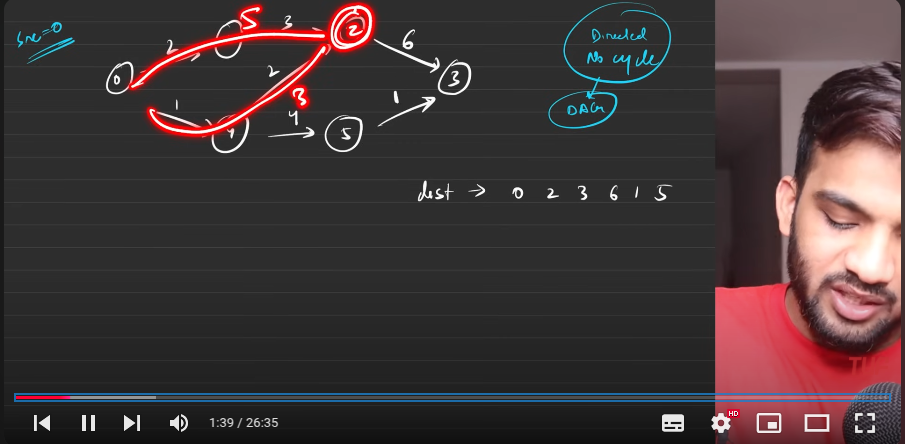 src=0
5
2
3
2
6
0
3
2
3
1
4
4
1
5
Directed
No cycle
DAG
dist → 0 2 3 6 1 5
1:39 / 26:35
HD